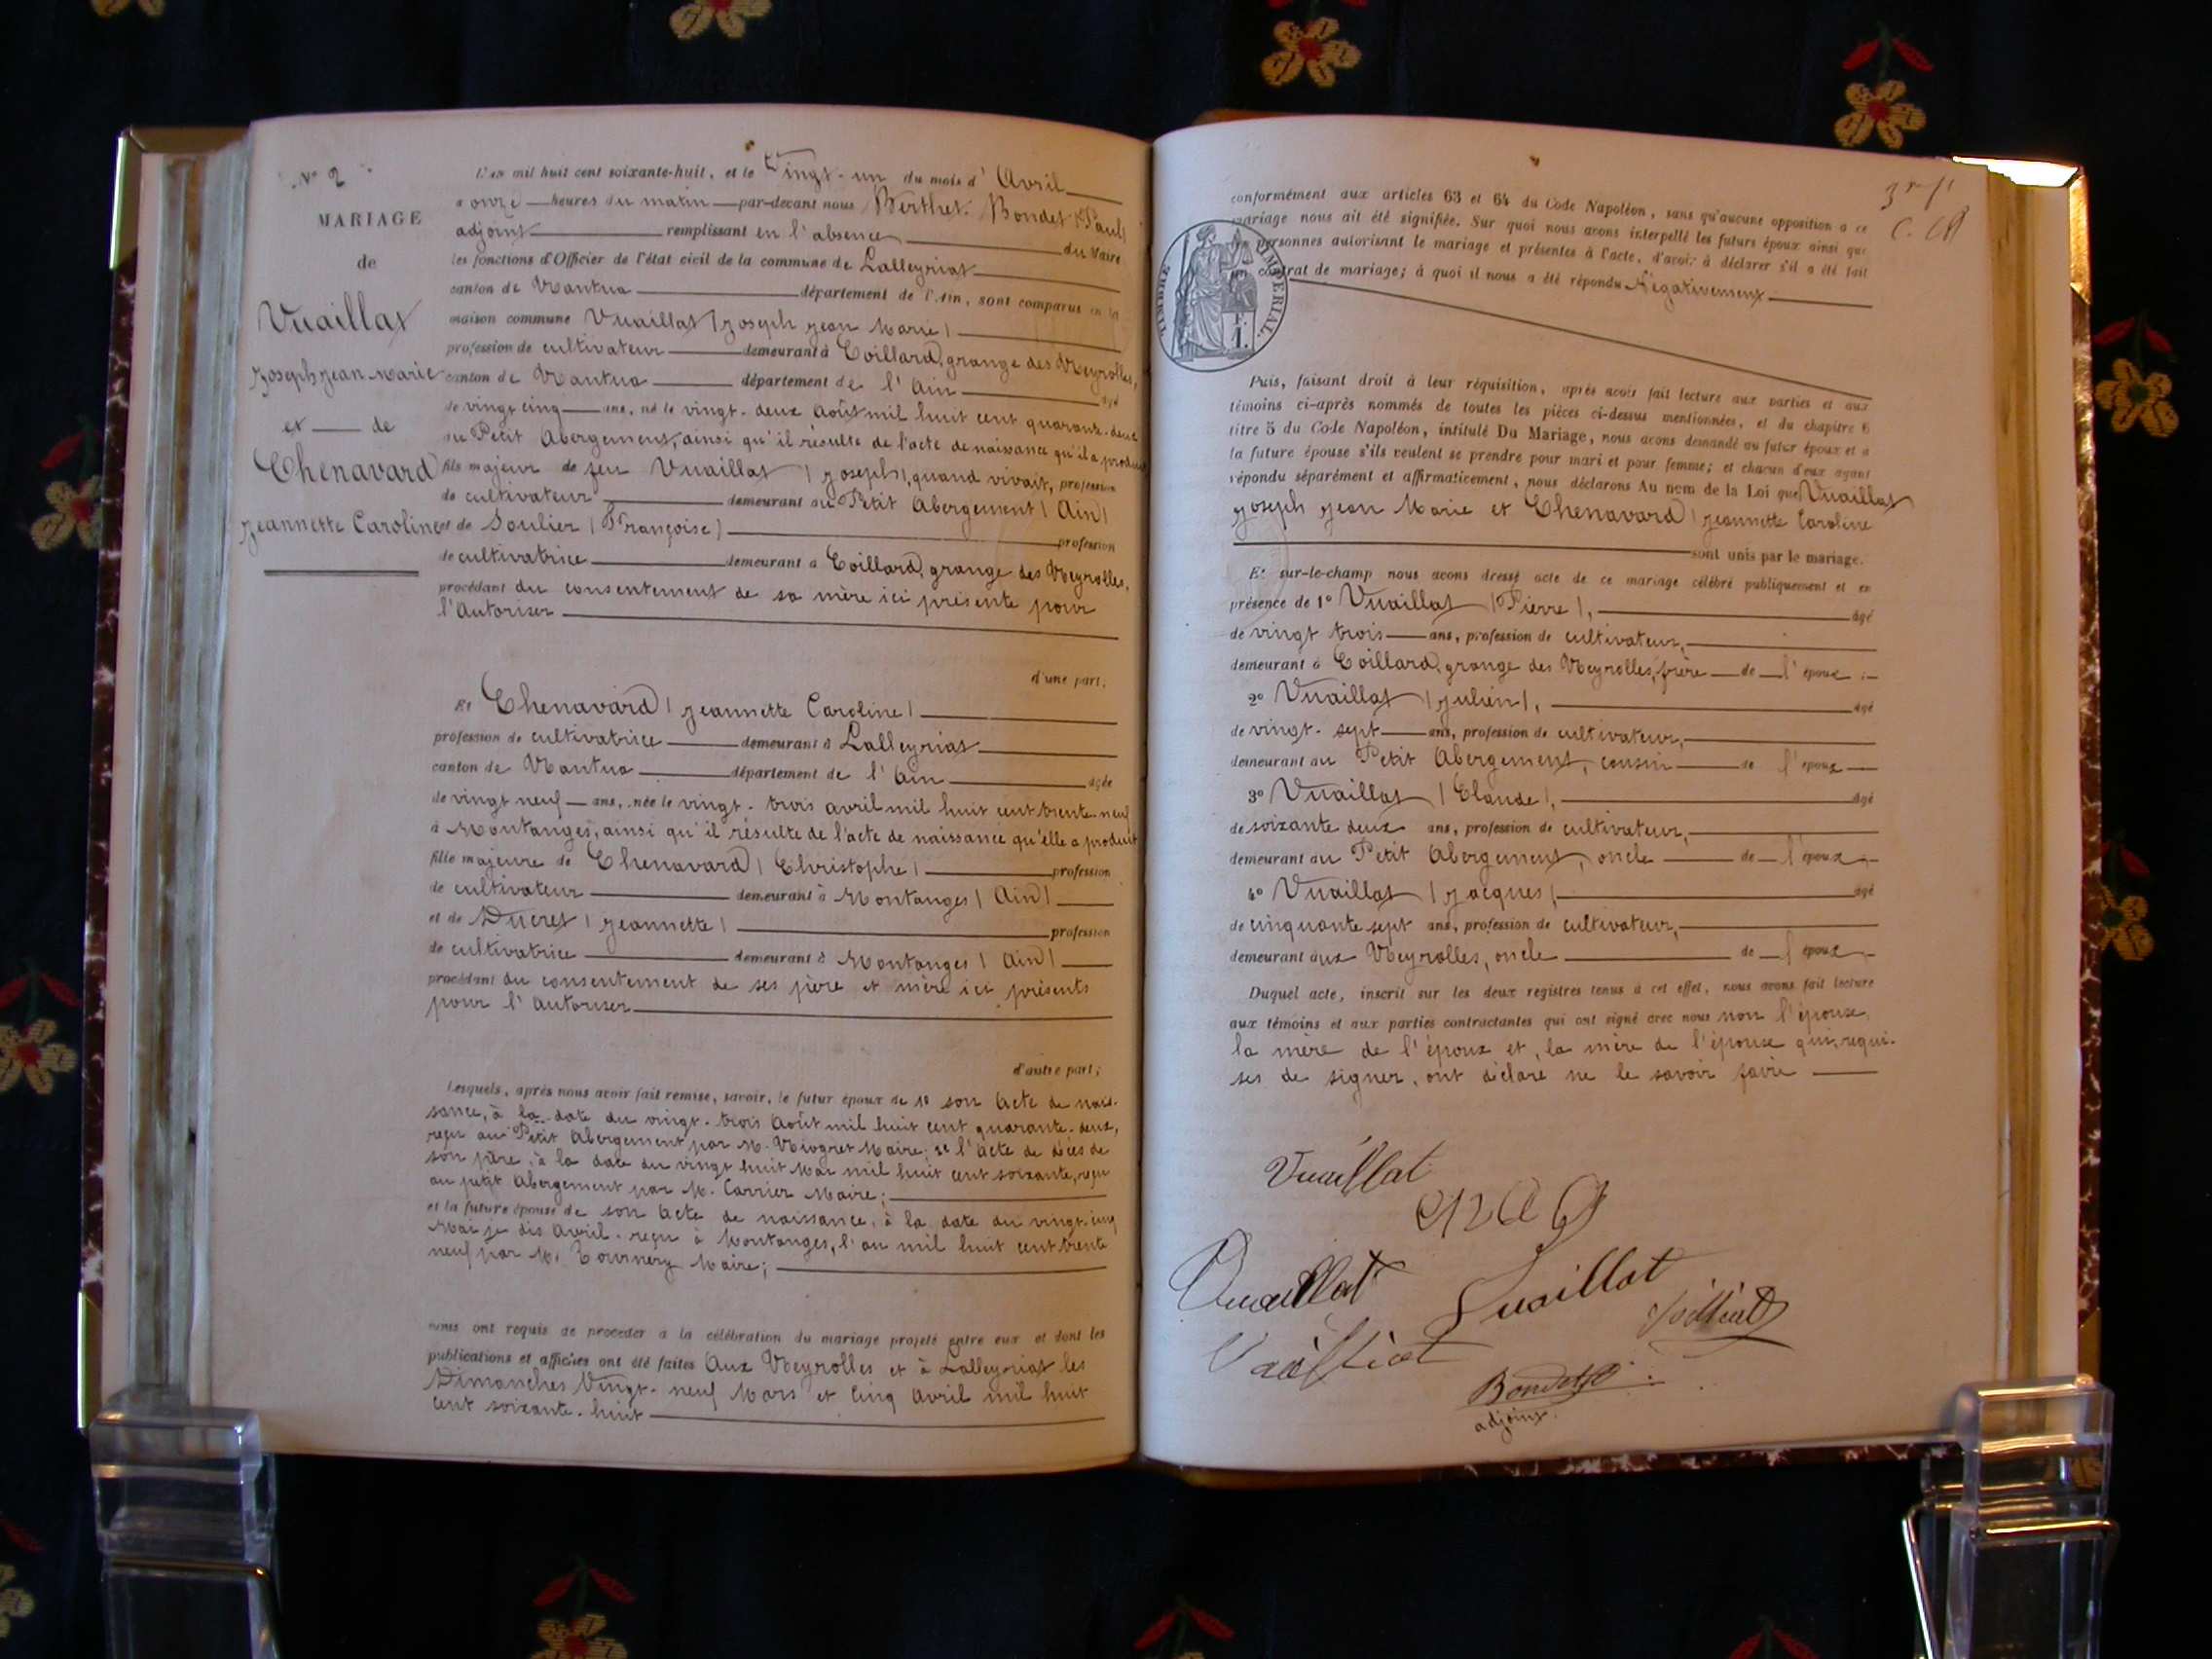 N° 2
MARIAGE
de
Vuaillat
Joseph Jean Marie
et — de
Chenavard
Jeannette Caroline
L'an mil huit cent soixante-huit, et le Vingt-un du mois d'Avril
a onze heures du matin par-devant nous Berthet-Bondet (Paul)
adjoint remplissant en l'absence du Maire
les fonctions d'Officier de l'état civil de la commune de Lalleyriat
canton de Nantua département de l'Ain, sont comparus en la
maison commune Vuaillat (Joseph Jean Marie)
profession de cultivateur demeurant à Coillard, grange des Neyrolles,
canton de Nantua département de l'Ain agé
de vingt cinq ans, né le vingt-deux Août mil huit cent quarante-deux
au Petit Abergement, ainsi qu'il résulte de l'acte de naissance qu'il a produit
fils majeur de feu Vuaillat (Joseph), quand vivait, profession
de cultivateur demeurant au Petit Abergement (Ain)
et de Soulier (Françoise) profession
de cultivatrice demeurant à Coillard, grange des Neyrolles,
procédant du consentement de sa mère ici présente pour
l'autoriser
d'une part,
Et Chenavard (Jeannette Caroline)
profession de cultivatrice demeurant à Lalleyriat
canton de Nantua département de l'Ain agée
de vingt neuf ans, née le vingt-trois avril mil huit cent trente-neuf
à Montanges, ainsi qu'il résulte de l'acte de naissance qu'elle a produit
fille majeure de Chenavard (Christophe) profession
de cultivateur demeurant à Montanges (Ain)
et de Ducret (Jeannette) profession
de cultivatrice demeurant à Montanges (Ain)
procédant du consentement de ses père et mère ici présents
pour l'autoriser
d'autre part;
Lesquels, après nous avoir fait remise, savoir, le futur époux de 1° son Acte de nais-
sance, à la date du vingt-trois Août mil huit cent quarante-deux,
reçu au Petit Abergement par M. Maire; 2° l'acte de décès de
son père, à la date du vingt huit Mai mil huit cent soixante, reçu
au petit Abergement par M. Carrier Maire;
et la future épouse de son Acte de naissance, à la date du vingt-cinq
Mai je dis Avril, reçu à Montanges, l'an mil huit cent trente
neuf par M. Tournery Maire;
nous ont requis de procéder à la célébration du mariage projeté entre eux et dont les
publications et affiches ont été faites Aux Neyrolles et à Lalleyriat les
Dimanches Vingt-neuf Mars et Cinq Avril mil huit
cent soixante-huit
conformément aux articles 63 et 64 du Code Napoléon, sans qu'aucune opposition à ce
mariage nous ait été signifiée. Sur quoi nous avons interpellé les futurs époux ainsi que
les personnes autorisant le mariage et présentes à l'acte, d'avoir à déclarer s'il a été fait
un contrat de mariage; à quoi il nous a été répondu Négativement
TIMBRE IMPERIAL
F.
1.
Puis, faisant droit à leur réquisition, après avoir fait lecture aux parties et aux
témoins ci-après nommés de toutes les pièces ci-dessus mentionnées, et du chapitre 6
titre 5 du Code Napoléon, intitulé Du Mariage, nous avons demandé au futur époux et à
la future épouse s'ils veulent se prendre pour mari et pour femme; et chacun d'eux ayant
répondu séparément et affirmativement, nous déclarons Au nom de la Loi que Vuaillat
Joseph Jean Marie et Chenavard (Jeannette Caroline
sont unis par le mariage.
Et sur-le-champ nous avons dressé acte de ce mariage célébré publiquement et en
présence de 1° Vuaillat (Pierre), agé
de vingt trois ans, profession de cultivateur,
demeurant à Coillard, grange des Neyrolles, frère de l'époux;
2° Vuaillat (Julien), agé
de vingt-sept ans, profession de cultivateur,
demeurant au Petit Abergement, cousin de l'époux
3° Vuaillat (Claude), agé
de soixante deux ans, profession de cultivateur,
demeurant au Petit Abergement, oncle de l'époux
4° Vuaillat (Jacques) agé
de cinquante sept ans, profession de cultivateur,
demeurant aux Neyrolles, oncle de l'époux
Duquel acte, inscrit sur les deux registres tenus à cet effet, nous avons fait lecture
aux témoins et aux parties contractantes qui ont signé avec nous non l'épouse,
la mère de l'époux et, la mère de l'épouse qui, requi-
ses de signer, ont déclaré ne le savoir faire
Vuaillat
Vuaillat
Vuaillat
Bondet
adjoint